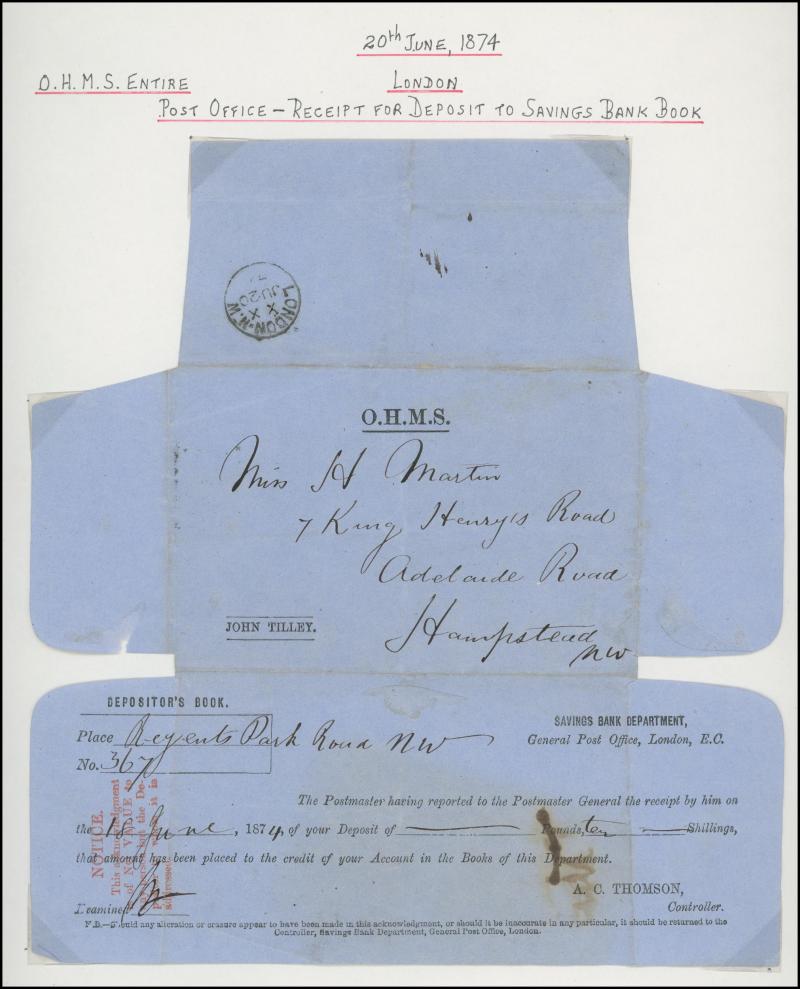 20th JUNE, 1874
O.H.M.S. ENTIRE
LONDON
POST OFFICE – RECEIPT FOR DEPOSIT TO SAVINGS BANK BOOK
LONDON·N.W
X X
JU20
O.H.M.S.
Miss H Martin
7 King Henry's Road
Adelaide Road
Hampstead
NW
JOHN TILLEY.
DEPOSITOR'S BOOK.
Place Regents Park Road NW
No. 367
SAVINGS BANK DEPARTMENT,
General Post Office, London, E.C.
The Postmaster having reported to the Postmaster General the receipt by him on
the 18 June, 1874, of your Deposit of —— Pounds, ten — Shillings,
that amount has been placed to the credit of your Account in the Books of this Department.
A. C. THOMSON,
Controller.
Examined
NOTICE.
This acknowledgment
is of NO VALUE to
any person but the De-
positor to whom it is
addressed.
F.B.—Should any alteration or erasure appear to have been made in this acknowledgment, or should it be inaccurate in any particular, it should be returned to the
Controller, Savings Bank Department, General Post Office, London.